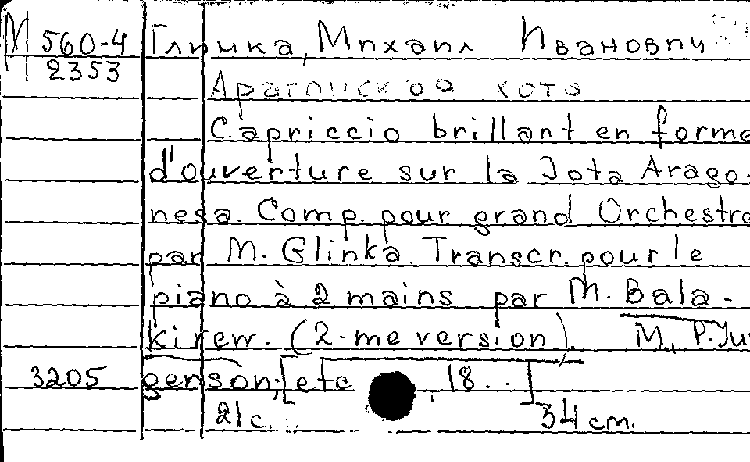 М 560-4 Глинка, Михаил Иванович
2353
Арагонская хота
Capriccio brillant en forme
d'ouverture sur la Jota Arago-
nesa. Comp. pour grand Orchestre
par M. Glinka. Transcr. pour le
piano à 2 mains par M. Bala-
kirew. (2-me version). М., P. Jur
3205 genson, [etc , 18..]
21 с. 34 cm.